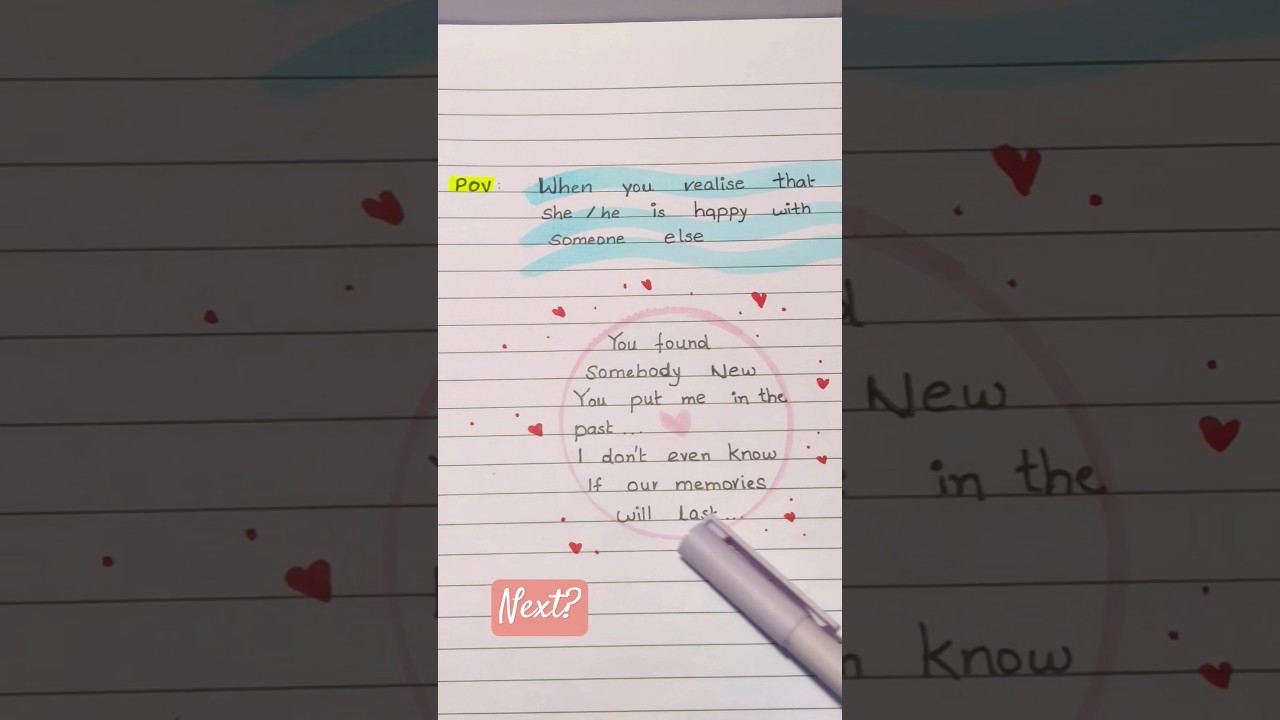 POV: When you realise that
she / he is happy with
someone else
You found
Somebody New
You put me in the
past...
I don't even know
If our memories
will Last...
Next?
New
in the
know